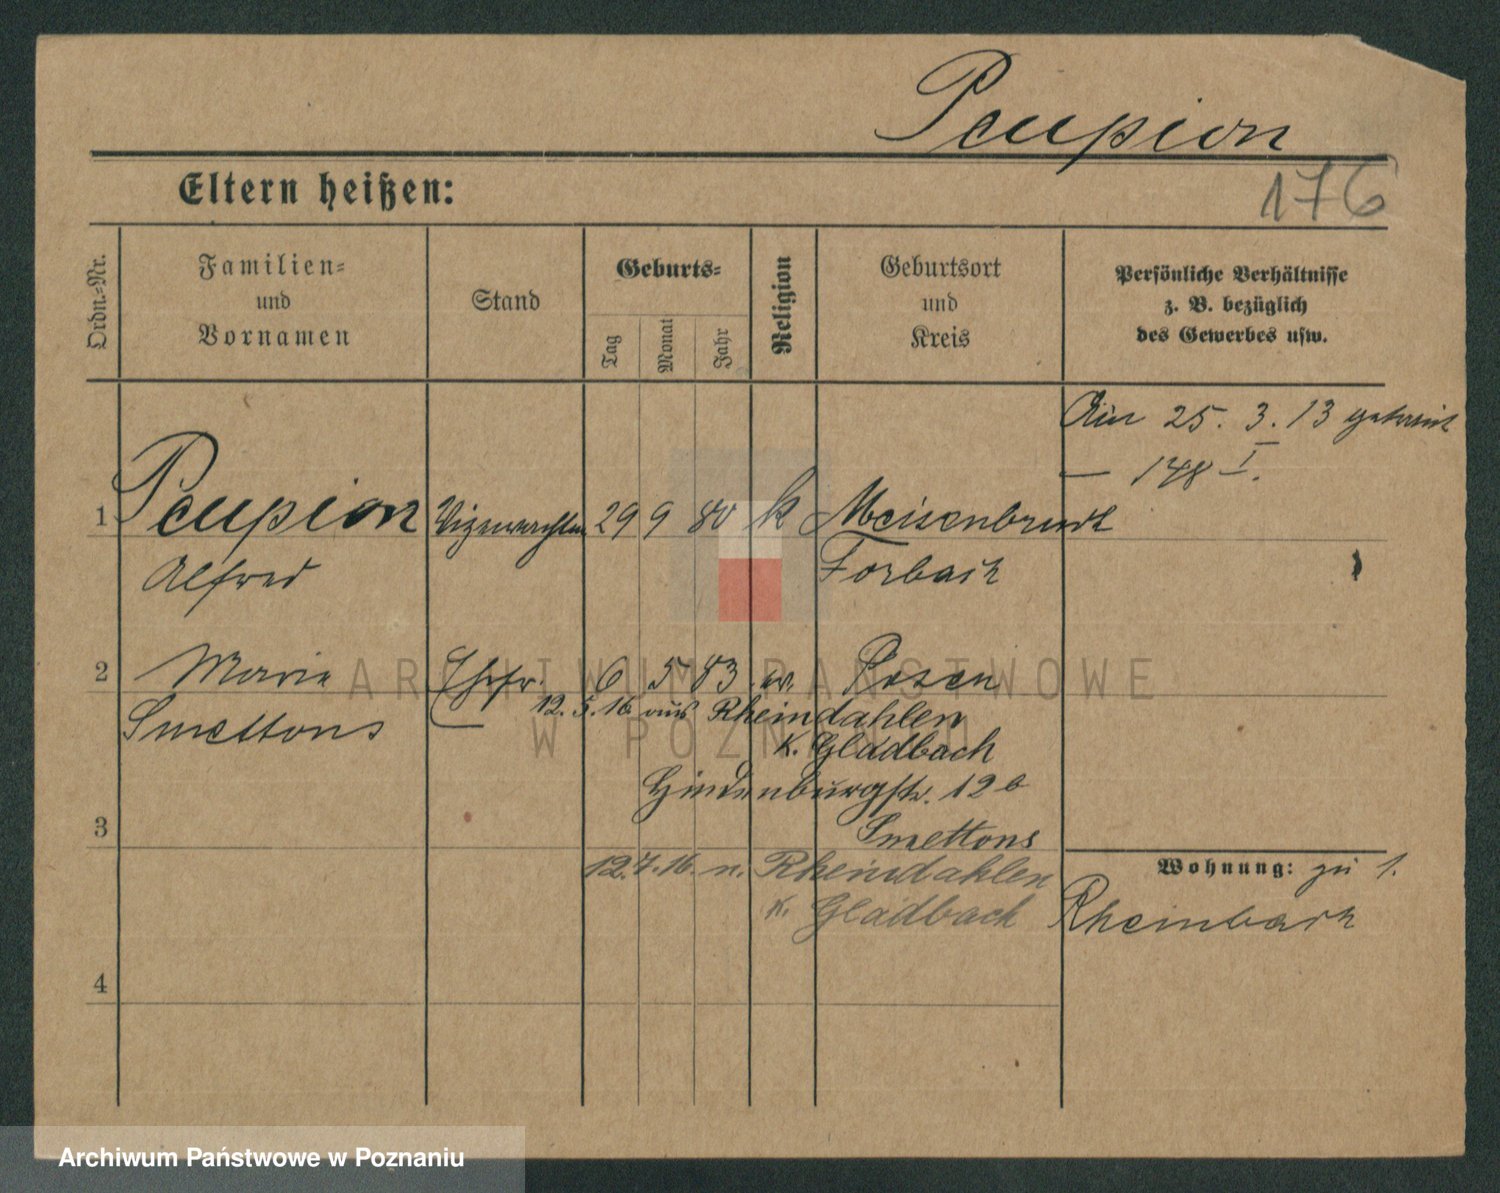 Peupion
176
Eltern heißen:
Ordn.-Nr.
Familien-
und
Vornamen
Stand
Geburts-
Tag
Monat
Jahr
Religion
Geburtsort
und
Kreis
Persönliche Verhältnisse
z. B. bezüglich
des Gewerbes usw.
Am 25. 3. 13 getraut
— 148 I.
1 Peupion 29 9 80 k
Alfred Forbach
2 Marie Ehefr. 6 5 83 ev. Posen
Smettons 12. 5. 16 aus Rheindahlen
K. Gladbach
Hindenburgstr. 12 b
3 Smettons
12. 7. 16. n. Rheindahlen
K. Gladbach
Wohnung: zu 1.
Rheinbach
4
ARCHIWUM PAŃSTWOWE
W POZNANIU
Archiwum Państwowe w Poznaniu